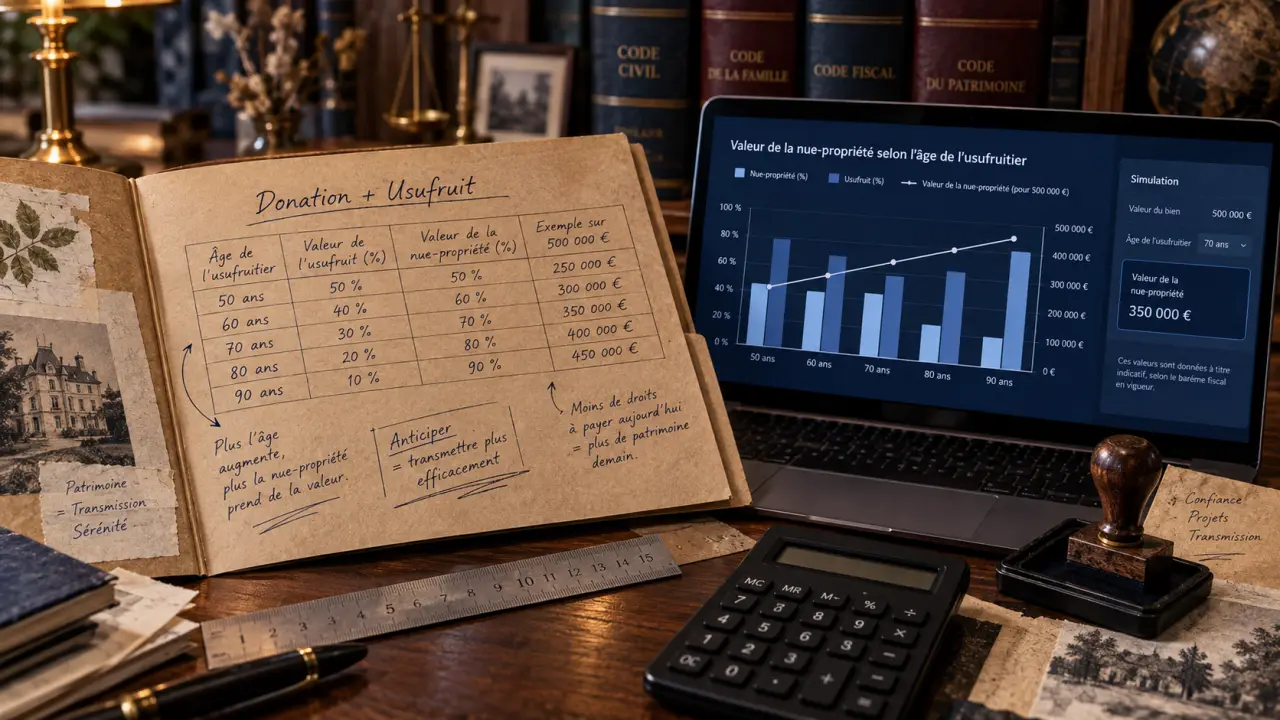 CODE
CIVIL
CODE
DE LA FAMILLE
CODE FISCAL
CODE
DU PATRIMOINE
Donation + Usufruit
Âge de l'usufruitier
Valeur de l'usufruit (%)
Valeur de la nue-propriété (%)
Exemple sur 500 000 €
50 ans 50 % 50 % 250 000 €
60 ans 40 % 60 % 300 000 €
70 ans 30 % 70 % 350 000 €
80 ans 20 % 80 % 400 000 €
90 ans 10 % 90 % 450 000 €
Plus l'âge
augmente,
plus la nue-propriété
prend de la valeur.
Anticiper
= transmettre plus
efficacement
Moins de droits
à payer aujourd'hui
= plus de patrimoine
demain.
Patrimoine
= Transmission
Sérénité
Valeur de la nue-propriété selon l'âge de l'usufruitier
Nue-propriété (%) Usufruit (%) Valeur de la nue-propriété (pour 500 000 €)
100 %
80 %
60 %
40 %
20 %
0 %
500 000 €
400 000 €
300 000 €
200 000 €
100 000 €
0 €
50 ans 60 ans 70 ans 80 ans 90 ans
Simulation
Valeur du bien 500 000 €
Âge de l'usufruitier 70 ans
Valeur de la
nue-propriété
350 000 €
Ces valeurs sont données à titre
indicatif, selon le barème fiscal
en vigueur.
Confiance
- Projets
Transmission
1 2 3 4 5 6 7 8 9 10 11 12 13 14 15
MC MR M- % ÷
7 3 8 9 ×
4 5 6 6 −
1 2 3 =
0C 0 .